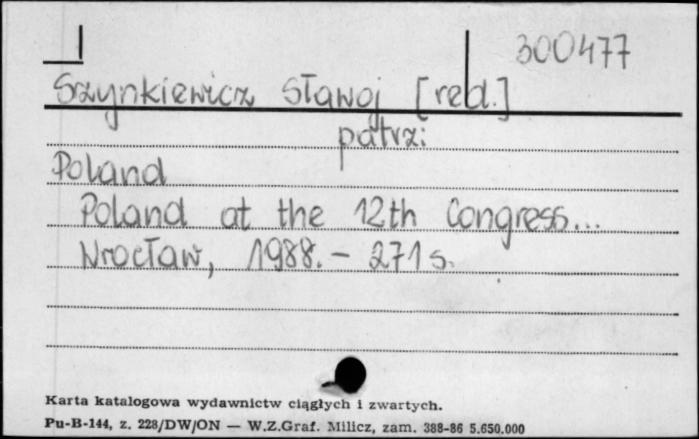 300477
Szynkiewicz Sławoj [red.]
patrz:
Poland
Poland at the 12th Congress...
Wrocław, 1988. – 271 s.
Karta katalogowa wydawnictw ciągłych i zwartych.
Pu-B-144, z. 228/DW/ON — W.Z.Graf. Milicz, zam. 388-86 5.650.000